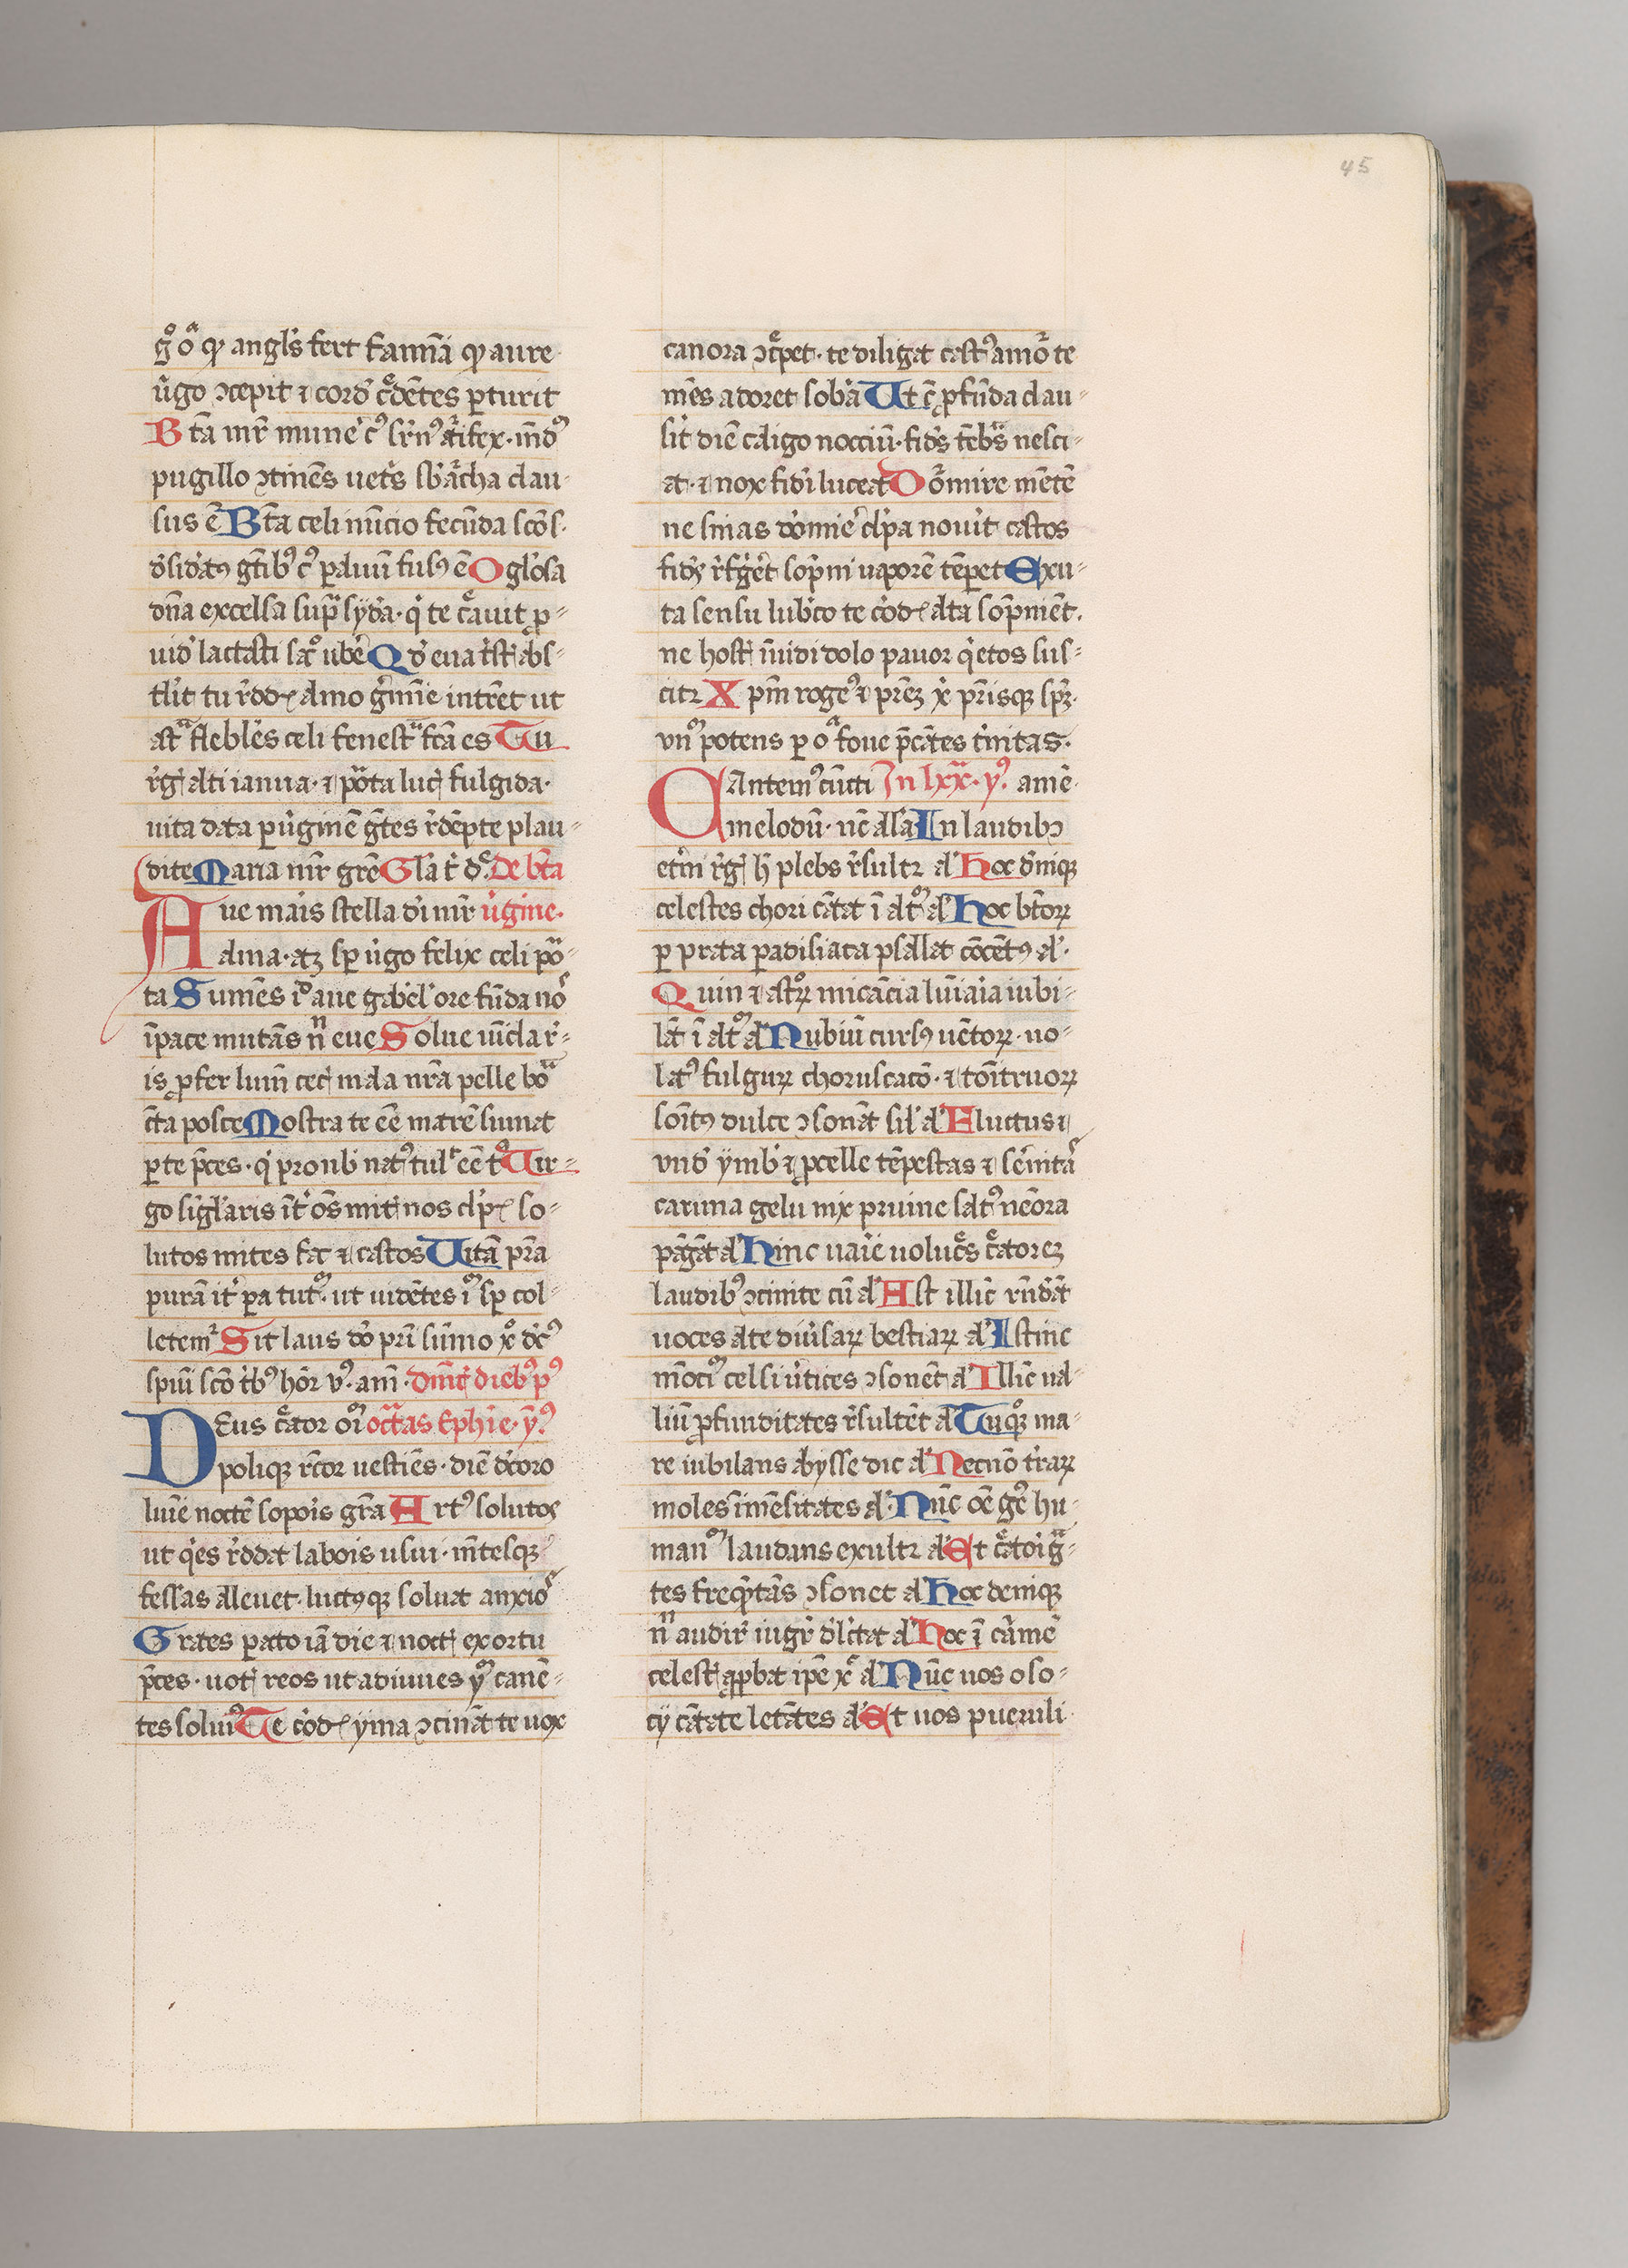 45
gͦ oͣ ꝙ angl's fert famīā ꝙ aure
v̉go ↄcepit ⁊ cord̓ cͤdētes ꝑturit
Bt̄a mr̄ mune̓ cꝰ sr̄nꝰ ar̓ifex · mūdꝰ
pugillo ↄtinēs uet̓s sb̓ archa clau
sus ē Bt̄a celi nūcio fecūda scō s
d̓sid̓atꝰ gētibꝰ cꝰ ꝑ aluū fusꝰ ē O gl'osa
dn̄a excelsa sup̄ syd̓a · qⁱ te cͤauit ꝓ⸗
uid̓ lactasti sacͦ ube̓ Qd̓ eua tⁱst̓ abs⸗
tl'it tu r̓dd̓ almo g̓mīe intrēt ut
astͣ flebl'es celi fenestͣ fc̄a es Tu
r̓g̓ alti ianua · ⁊ pͦta luc̓ fulgida ·
uita data ꝑ v̓ginē gētes r̓dēpte plau⸗
dite Maria mr̄ grē Gl'a t̓ dͤ De bt̄a
Aue mais̓ stella di̓ mr̄ v̓gine ·
alma · atqꝫ sꝑ v̓go felix celi poͣ⸗
ta Sumēs iͦ aue gab̓el' ore fūda nō
ī pace mutās nͫ eue Solue uīcla r̓⸗
is ꝓfer lumē cec̓ mala nr̄a pelle boͣ
cc̄ta posce Mostra te eē matrē sumat
ꝑ te p̄ces · qⁱ pro nob̓ natꝰ tul' eē tꝰ Uir⸗
go sīgl'aris īt̓ oēs mit̓ nos cl'p̓ so⸗
lutos mites fac ⁊ castos Uitā p̄ra
purā it̓ ꝑa tutͫ · ut uidētes iͫ sꝑ col⸗
letemꝰ Sit laus dō pr̄i sūmo xͦ dc̓ꝰ
spūi scō tⁱbꝰ hōr vꝰ · am̄ · Dn̄ic̓ diebꝰ pꝰ
Deus cͤator oīm octͣas Ephīe · yꝰ
poliqꝫ rc̄or uestiēs · diē dc̓oro
lumīe noctē sopois̓ gr̄a Artꝰ solutos
ut qⁱes r̓ddat labois̓ usui · mētesqꝫ
fessas alleuet · luctꝰqꝫ soluat anxio
Grates ꝑato iā die ⁊ noct̓ exortu
p̄ces · uot̓ reos ut adiuues yͫ canē⸗
tes soluiꝰ Te cord̓ yma ↄcināt te uox
canora ↄcͤpet · te diligat castꝰ amor̓ te
mēs adoret sobⁱa Ut cū ꝓfūda clau⸗
sit̓ diē caligo noctiū · fid̓s tēb̓s nesci⸗
at · ⁊ nox fid̓i luceat Dor̓mire mētē
ne sinas dōmie̓ cl'pa nou̓it castos
fid̓s r̓fg̓et̓ sop̄ni uaporē tēꝑet Exu⸗
ta sensu lubⁱco te cord̓ alta sop̄niēt ·
ne host̓ īuidi dolo pauor qⁱetos sus⸗
citꝫ Xpm̄ rogeꝰ ⁊ pr̄ēꝫ x̓ pr̄isqꝫ sp̄ꝫ ·
vnͫ potens ꝑ oͣ foue p̄cātes tⁱnitas ·
Cantemꝰ cūcti In lxxͣ · yꝰ amē
melodū · nc̄ all'a In laudibꝫ
et̓ni r̓g̓ h̓ plebs r̓sultꝫ al' Hoc d̓niqꝫ
celestes chori cātāt ī altͫ al' Hoc bt̄orꝝ
ꝑ prata ꝑadisiaca psallat cōcētꝰ al' ·
Quin ⁊ astrꝝ micācia lūiaia iubi⸗
lāt ī altͫ al' Nubiū cursꝰ uētorꝝ · uo⸗
latꝰ fulgurꝝ choruscacō · ⁊ tōitruorꝝ
soīitꝰ dulce ↄsonāt sil' al' Fluctus ⁊
vnd̓ ymb̓ ⁊ ꝓcelle tēpestas ⁊ se̓nita
cauma gelu nix pruine saltꝰ nēora
pāgāt al' Hinc uaie̓ uolucͤs cͤatorēꝫ
laudibꝰ ↄcinite cū al' Ast illic̄ rn̄dāt
uoces alte diu̓sarꝝ bestiarꝝ al' Istinc
mōciꝰ celsi v̓tices ↄsonēt al' Illic̄ ual⸗
liū ꝓfunditates r̓sultēt al' Tu qͦqꝫ ma⸗
re iubilans abysse dic al' Necnō t̓rarꝝ
moles īmēsitates al' · Nūc oē geꝰ hu⸗
manͫ laudans exultꝫ al' Et cͤatoi̓ gͣ⸗
tes freq̄ntās ↄsonet al' Hoc deniqꝫ
nͫ audir̓ iugr̓ dl'c̓tat al' Hoc ī c̓armē
celest̓ ꝓbat ip̄e xͨ al' Nūc uos o so⸗
cij cātate letātes al' Et uos pueruli